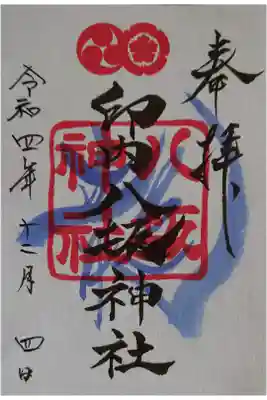 奉拝
印内八坂神社
八坂
神社
令和四年十二月四日